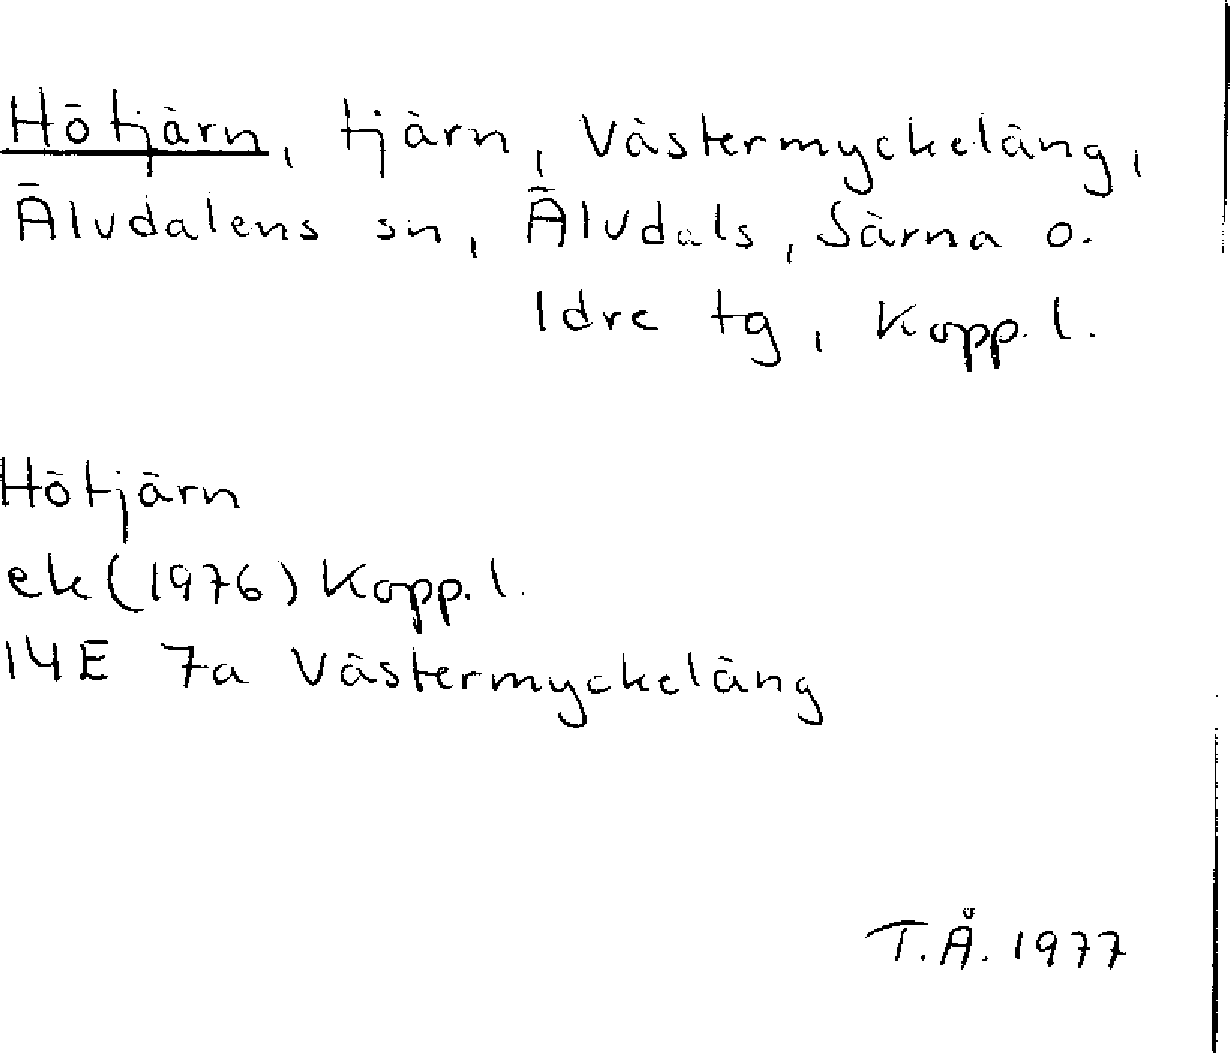 Hötjärn, tjärn, Västermyckeläng,
Älvdalens sn, Älvdals, Särna o.
Idre tg, Kopp. l.
Hötjärn
ek (1976) Kopp. l.
14E 7a Västermyckeläng
T.Å. 1977